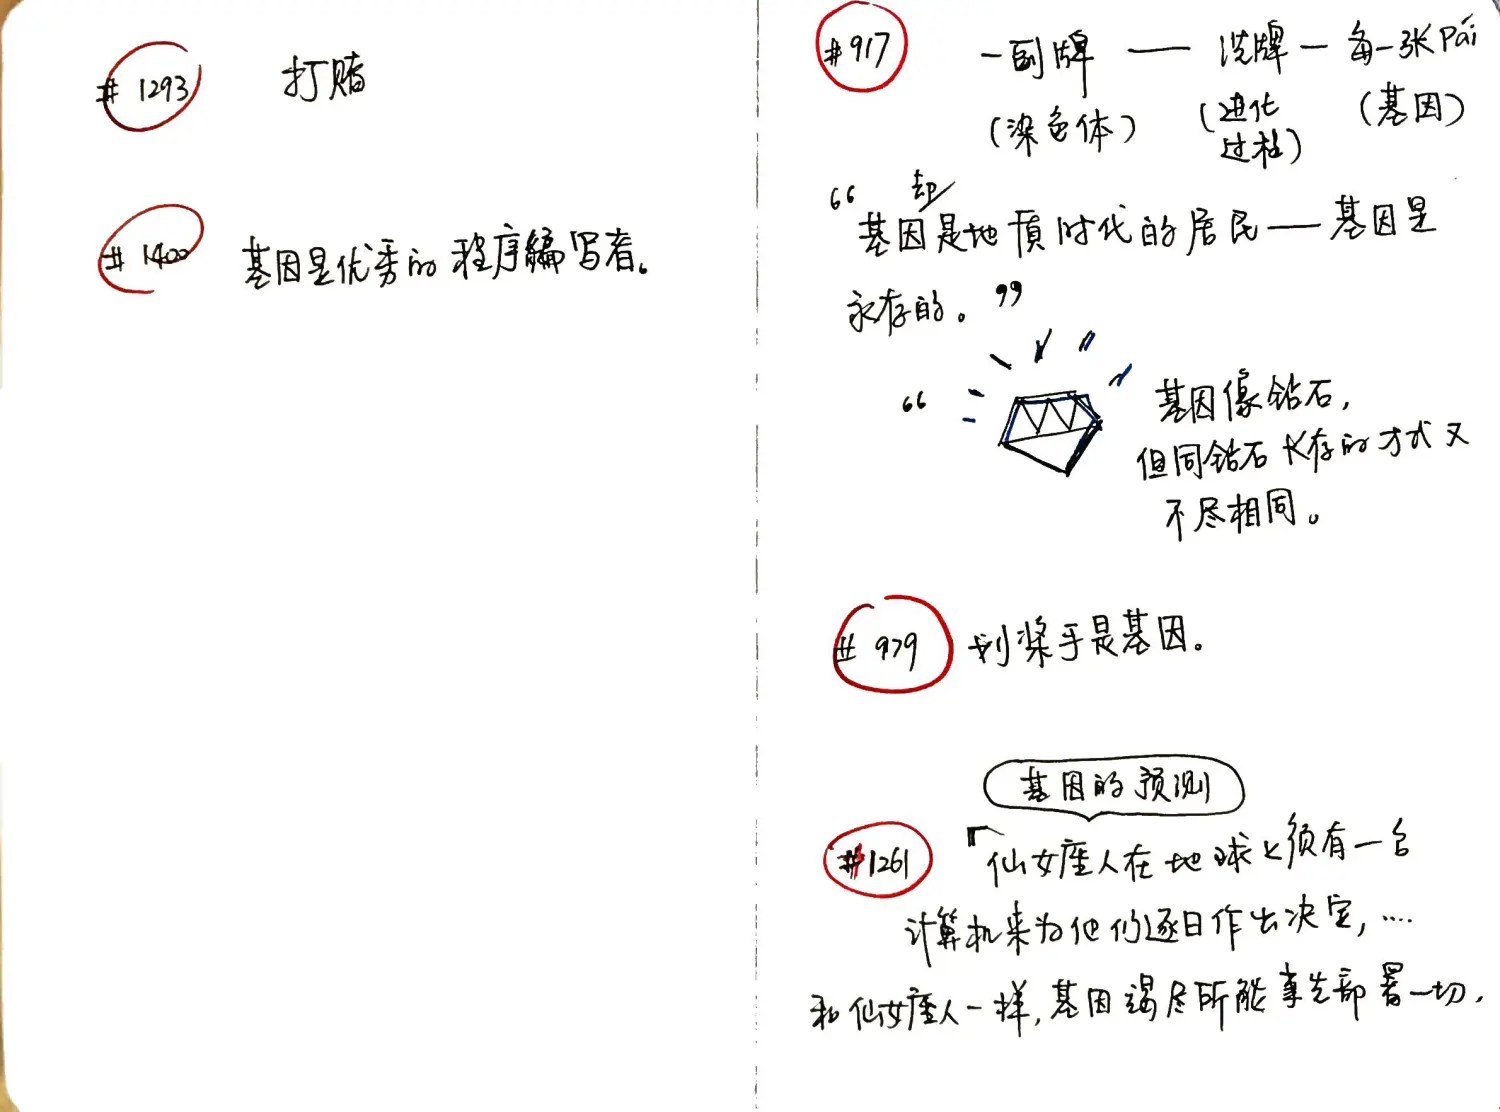 #1293 打赌
#1400 基因是优秀的程序编写者。
#917 一副牌 — 洗牌 — 每一张Pái
(染色体) (进化过程) (基因)
“基因却是地质时代的居民——基因是
永存的。”
“ 基因像钻石,
但同钻石长存的方式又
不尽相同。
#979 划桨手是基因。
基因的预测
#1261 「仙女座人在地球上须有一台
计算机来为他们逐日作出决定,....
和仙女座人一样,基因竭尽所能事先部署一切,